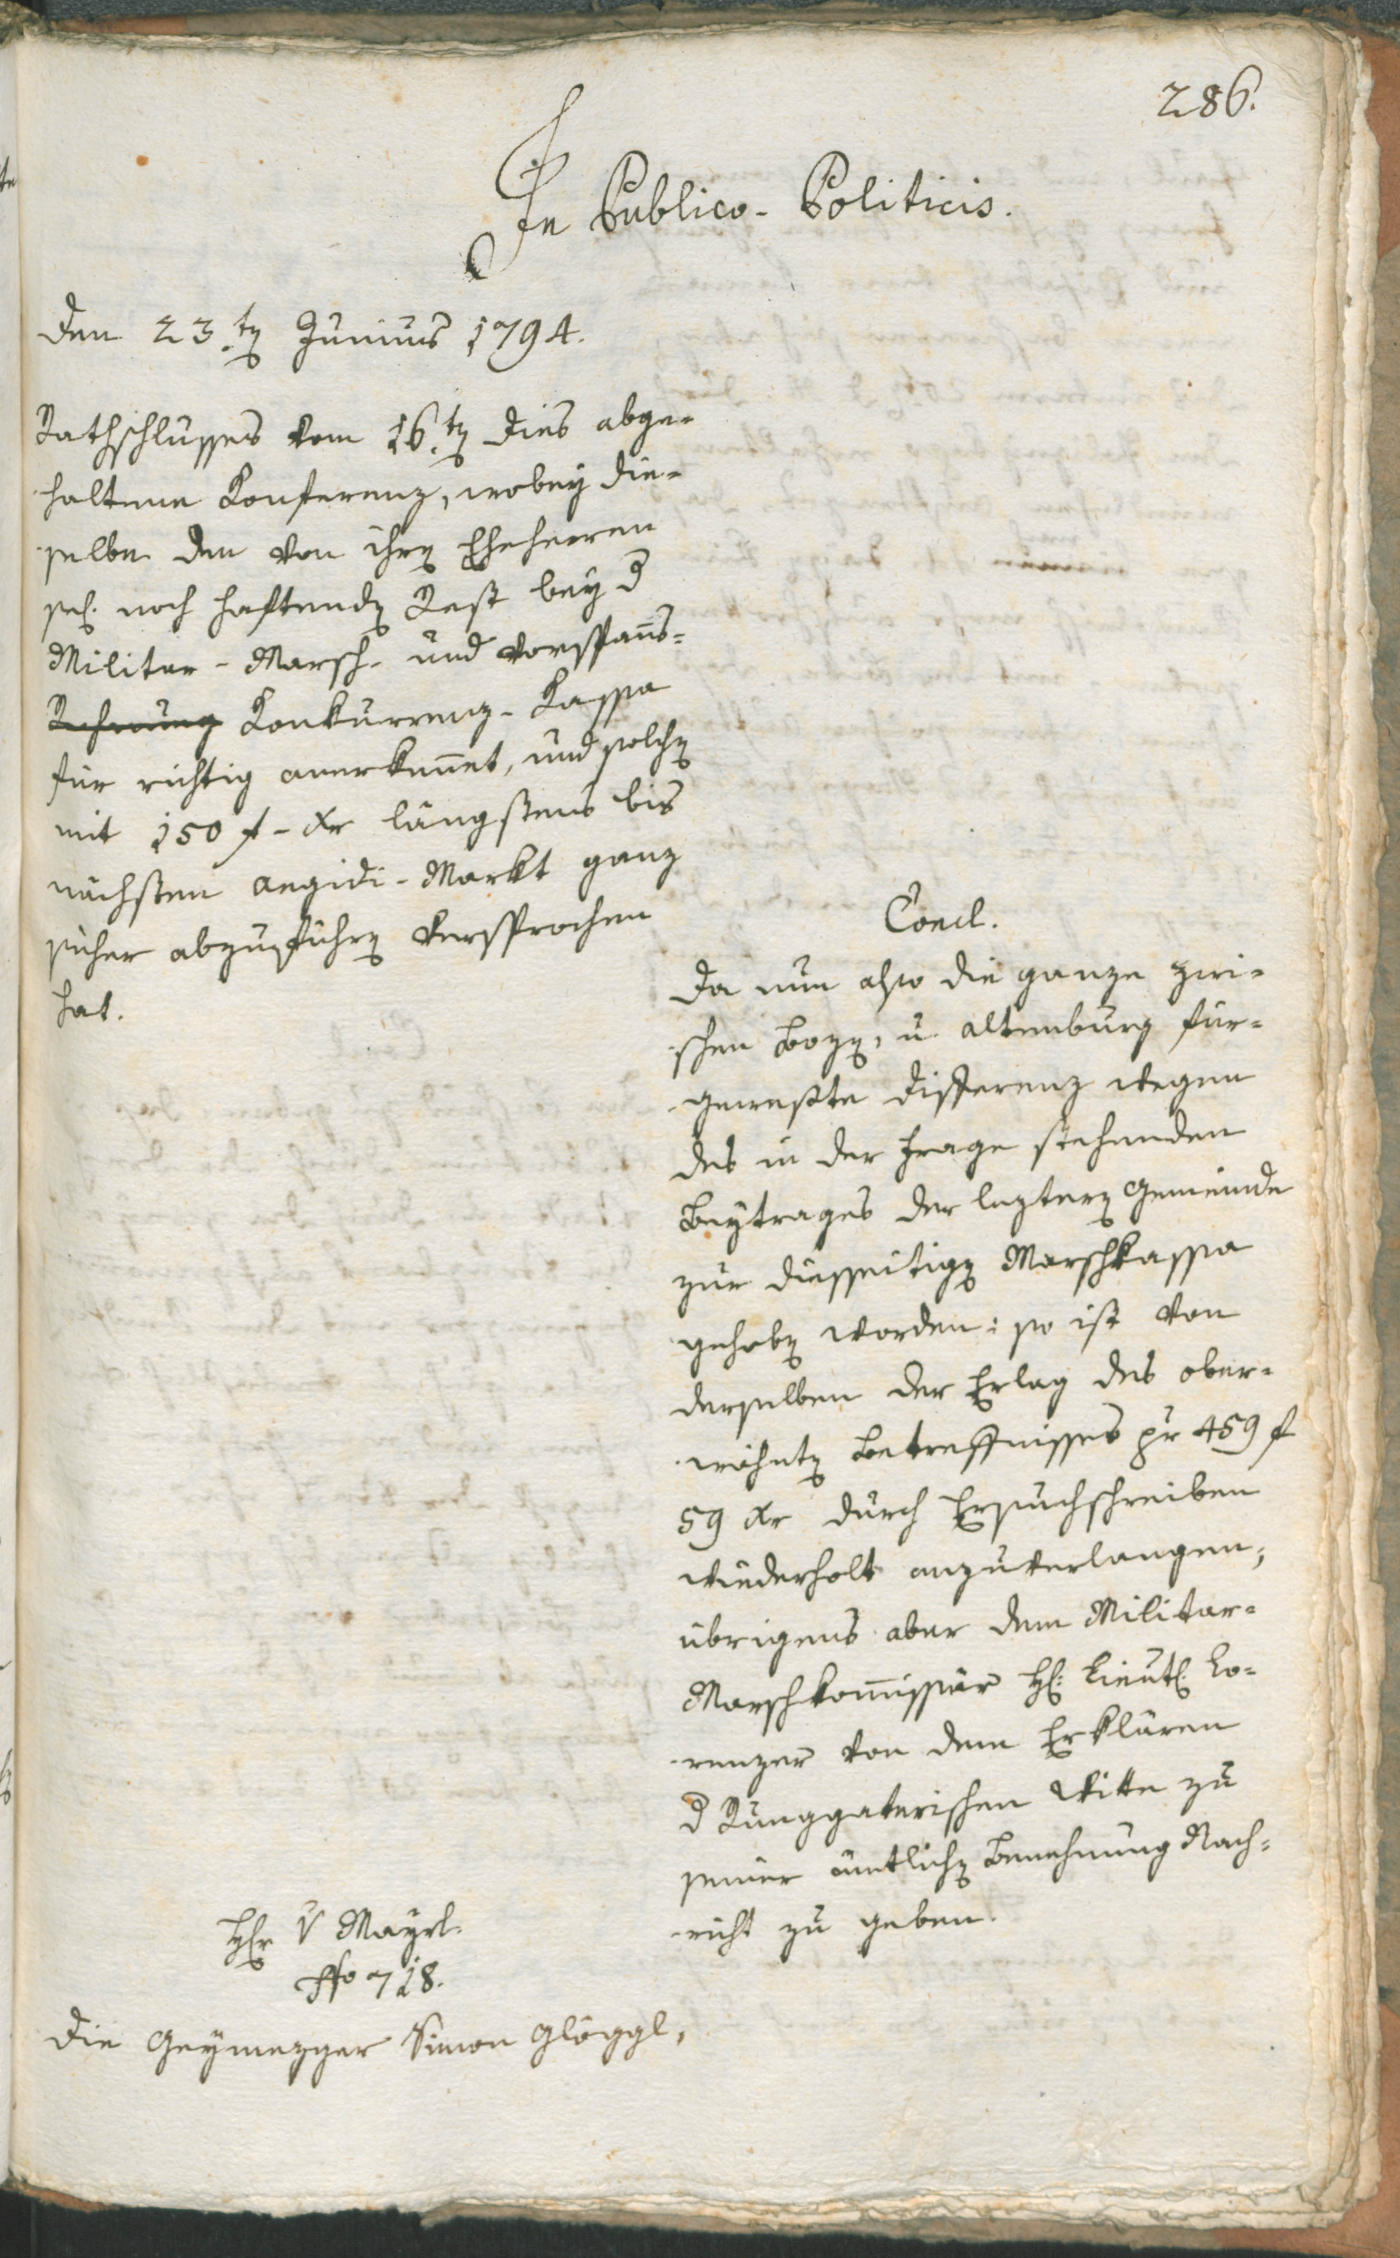 286.
In Publico-Politicis.
Den 23.ten Junius 1794.
Rathschlusses vom 16.ten dies abge-
haltene Konferenz, wobey die-
selbe den von ihren Eheherren
sel. noch haftenden Rest bey d
Militar-Marsch- und Vorspanns-
Rechnung Konkurrenz-Kassa
für richtig anerkennet, und solchen
mit 150 f - xr längstens bis
nächsten Aegidi-Markt ganz
sicher abzuführen versprochen
hat.
Concl.
Da nun also die ganze zwi-
schen Bozen, u. Altenburg für-
geweßte Differenz wegen
des in der Frage stehenden
Beytrages der leztern Gemeinde
zur diesseitigen Marschkassa
gehoben worden: so ist von
derselben der Erlag des ober-
wähnten Betreffnisses pr 459 f
59 xr durch Ersuchschreiben
wiederholt anzuverlangen;
übrigens aber dem Militar-
Marschkommissär H. Lieut. Lo-
renzer von dem Erklären
d Runggaterischen Witte zu
seiner ämtlichen Benehmung Nach-
richt zu geben.
Hr v Mayrl.
ffo 718.
Die Geymezger Simon Glöggl,